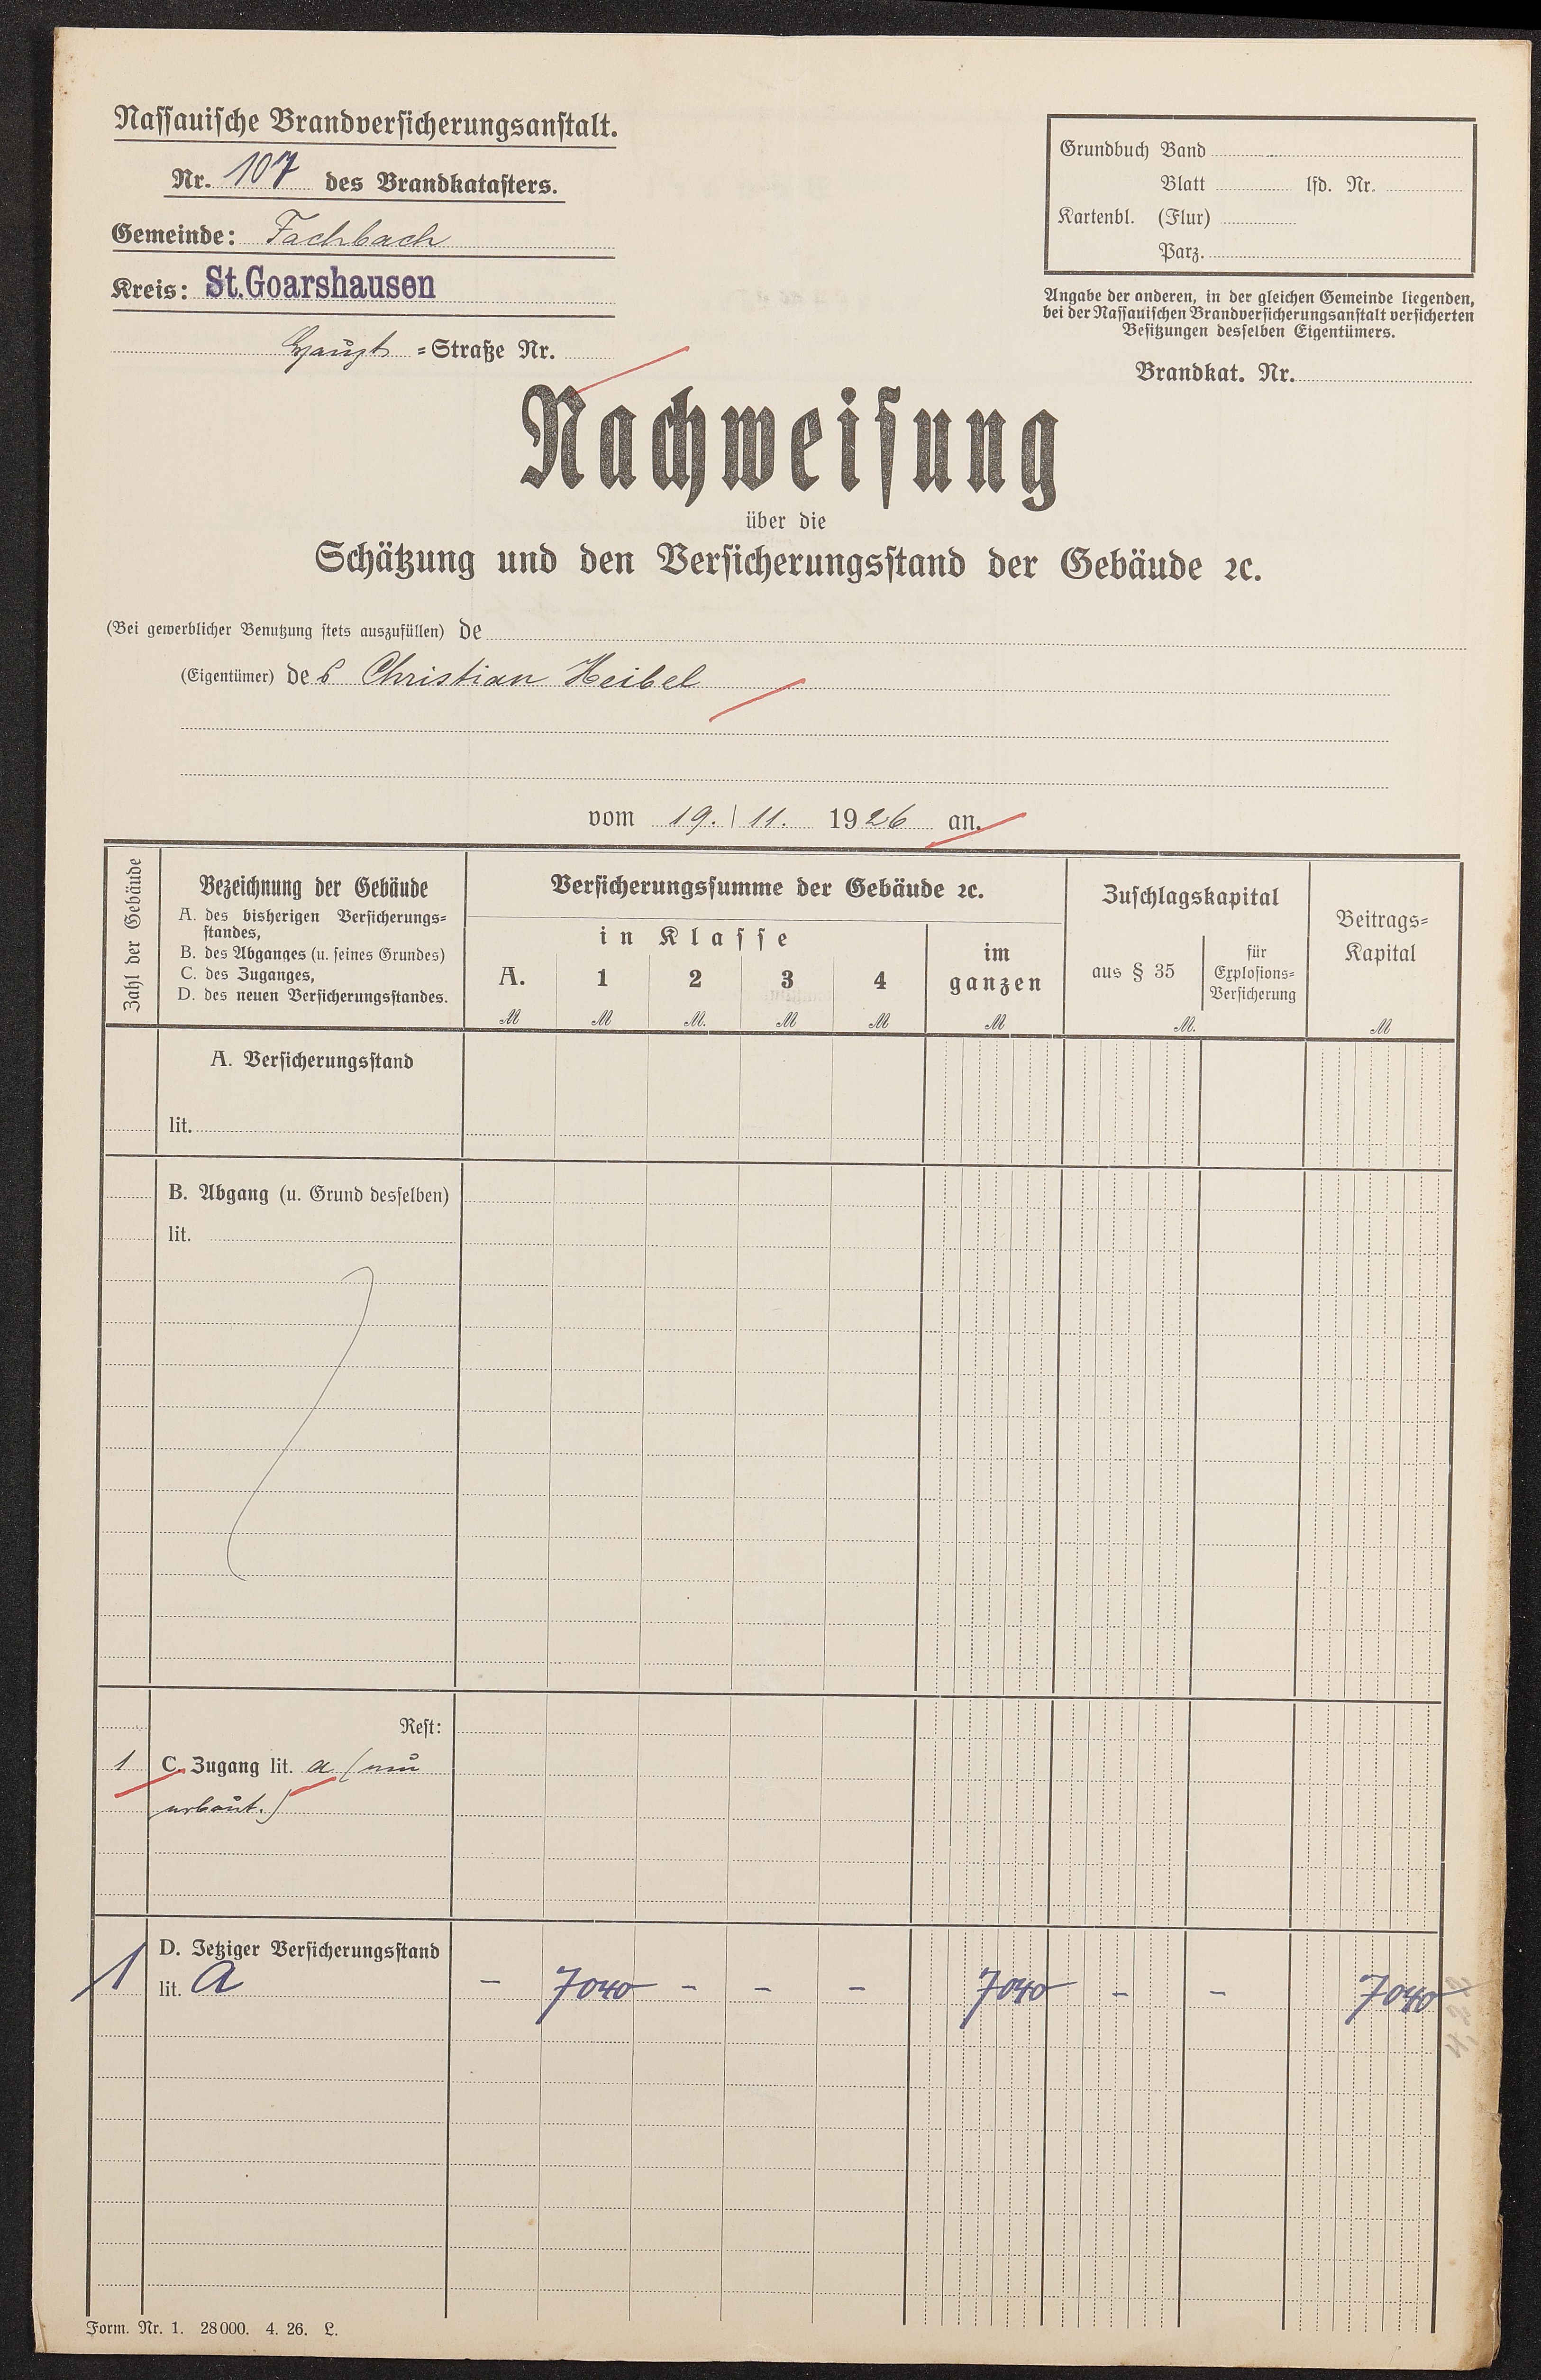 Nassauische Brandversicherungsanstalt.
Nr. 107 des Brandkatasters.
Gemeinde: Fachbach
Kreis: St. Goarshausen
Haupt =Straße Nr.
Grundbuch Band
Blatt lfd. Nr.
Kartenbl. (Flur)
Parz.
Angabe der anderen, in der gleichen Gemeinde liegenden,
bei der Nassauischen Brandversicherungsanstalt versicherten
Besitzungen desselben Eigentümers.
Brandkat. Nr.
Nachweisung
über die
Schätzung und den Versicherungsstand der Gebäude ꝛc.
(Bei gewerblicher Benutzung stets auszufüllen) de
(Eigentümer) des Christian Heibel
vom 19. / 11. 1926 an.
Zahl der Gebäude
Bezeichnung der Gebäude
A. des bisherigen Versicherungs=
standes,
B. des Abganges (u. seines Grundes)
C. des Zuganges,
D. des neuen Versicherungsstandes.
Versicherungssumme der Gebäude ꝛc.
in Klasse
A. 1 2 3 4
im
ganzen
ℳ ℳ ℳ. ℳ ℳ ℳ
Zuschlagskapital
aus § 35
für
Explosions=
Versicherung
ℳ.
Beitrags=
Kapital
ℳ
A. Versicherungsstand
lit.
B. Abgang (u. Grund desselben)
lit.
Rest:
1 C. Zugang lit. a (neu
erbaut.)
D. Jetziger Versicherungsstand
1 lit. a - 7040 - - - 7040 - - 7040
Form. Nr. 1. 28000. 4. 26. L.